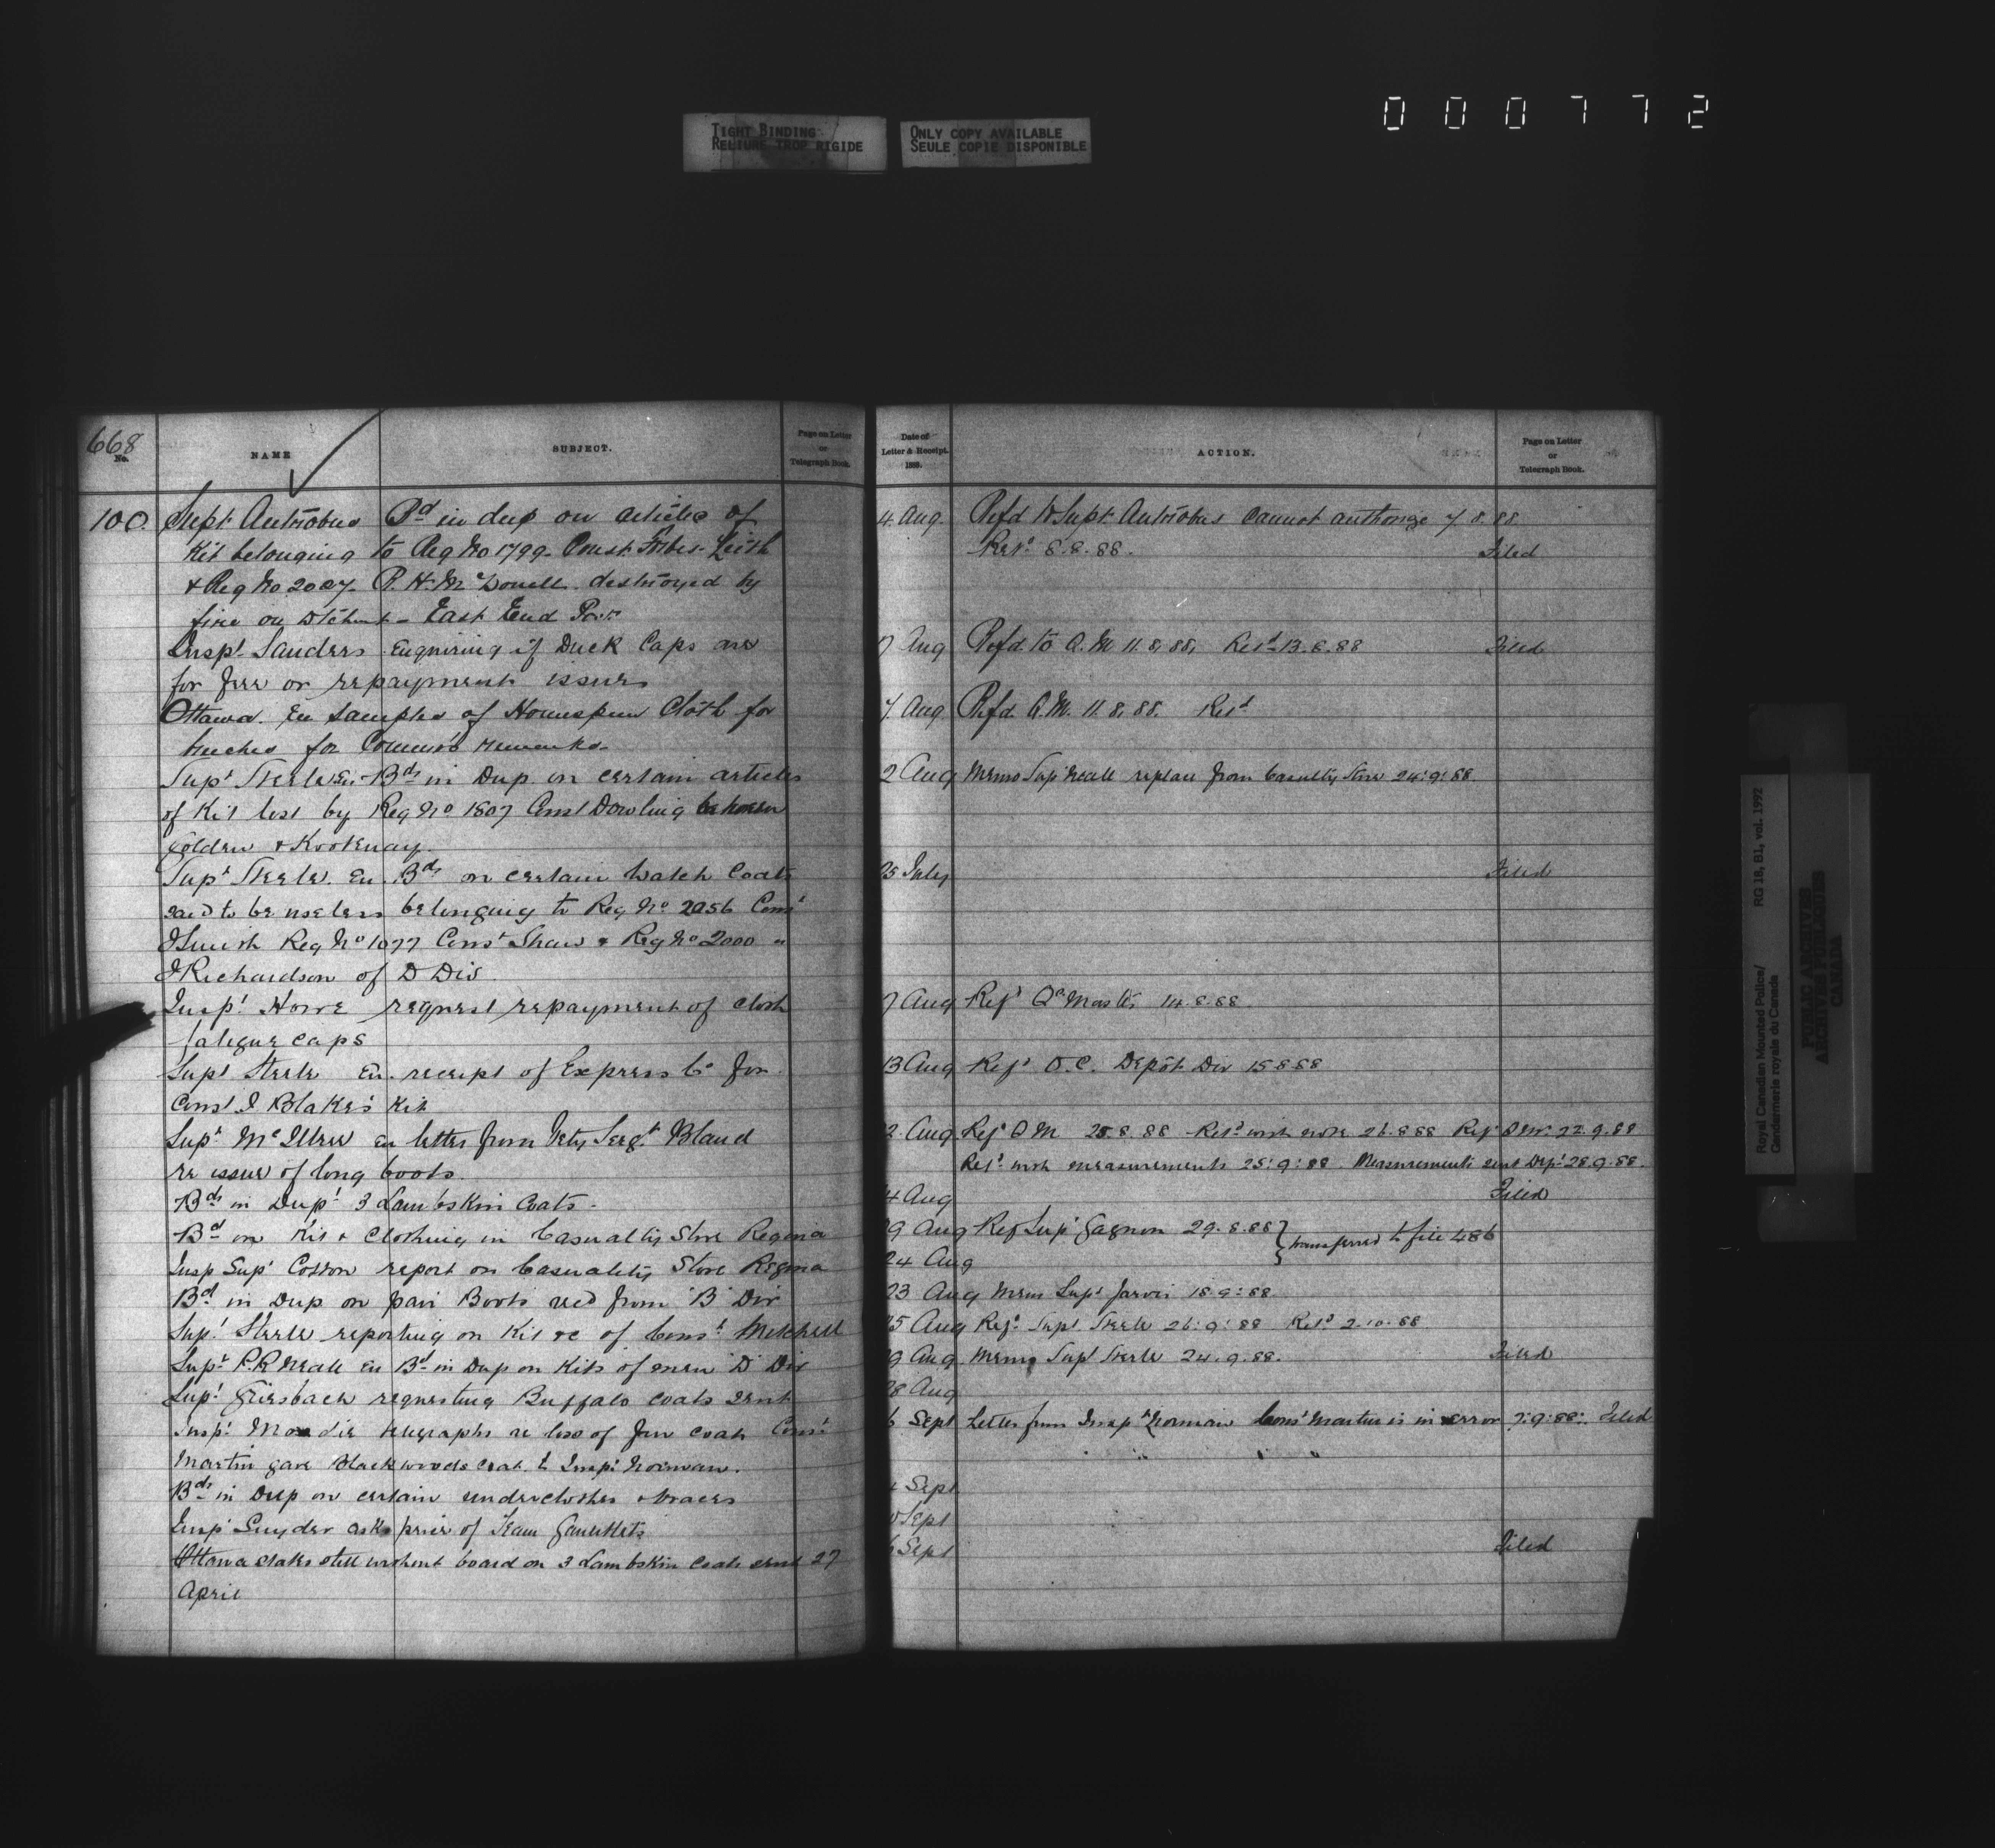 000772
TIGHT BINDING
RELIURE TROP RIGIDE
ONLY COPY AVAILABLE
SEULE COPIE DISPONIBLE
668
No.
NAME
SUBJECT.
Page on Letter
or
Telegraph Book.
100. Supt. Antrobus Bd in dup on articles of
Kit belonging to Reg No 1799 Const. Forbes-Leith
& Reg No 2007 R. H. McDonell destroyed by
fire on East End
Inspt. Sanders Enquiring if Duck Caps are
for free or repayment issues
Ottawa. En samples of Homespun Cloth for
breeches for Commrs remarks
Supt Steele En. Bds in Dup. on certain articles
of Kit lost by Reg No 1807 Const Dowling between
Golden & Kootenay.
Supt Steele. En. Bds on certain Watch Coats
said to be useless belonging to Reg No 2056 Const
Reg No 1077 Const Shaw & Reg No 2000 "
J Richardson of D Div.
Inspt Howe request repayment of cloth
fatigue caps
Supt Steele En. receipt of Express Co for
Const J Blake's Kit
Supt McIllree en letter from Vety Sergt Bland
re issue of long boots.
Bds in Dupt 3 Lambskin Coats.
Bd on Kit & Clothing in Casualty Store Regina
Insp Supt Cotton report on Casualty Store Regina
Bd in Dup on pair Boots recd from "B" Div
Supt Steele reporting on Kit &c of Const Mitchell
Supt P. R Neale En Bd in Dup on Kits of men "D" Div
Supt Griesbach requesting Buffalo coats sent
Inspt Moodie telegraphs re loss of fur coat Const
Martin gave Blackwoods coat to Inspt Norman.
Bds in Dup on certain underclothes & braces
Inspt Snyder asks price of Team Gauntlets
Ottawa states still without board on 3 Lambskin Coats sent 27
April
Date of
Letter & Receipt.
1888.
ACTION.
Page on Letter
or
Telegraph Book.
4 Aug. Refd to Supt. Antrobus Cannot authorize 7.8.88
Retd 8.8.88. Filed
7 Aug Refd to Q.M 11.8.88, Retd 13.8.88 Filed
7 Aug Refd Q.M. 11.8.88. Retd
2 Aug Memo Supt Neale replace from Casualty Store 24:9:88
25 July Filed
7 Aug Refd Qr Master 14.8.88
13 Aug Refd O.C. Depôt Div 15.8.88
2 Aug Refd Q M 25.8.88 Retd with note 26.8.88 Refd 22.9.88
Retd with measurements 25:9:88. Measurements sent Dept 28.9.88.
4 Aug Filed
29 Aug Ref Supt Gagnon 29.8.88 } transferred to file 486
24 Aug
23 Aug Memo Supt Jarvis 18:9:88.
25 Aug Refd Supt Steele 26:9:88 Retd 2.10.88
29 Aug Memo Supt Steele 24.9.88. Filed
28 Aug
6 Sept Letter from Inspt Norman Const Martin is in error 7:9:88: Filed
4 Sept
Sept
6 Sept Filed
Royal Canadian Mounted Police/
Gendarmerie royale du Canada
RG 18, B1, vol. 1992
PUBLIC ARCHIVES
ARCHIVES PUBLIQUES
CANADA